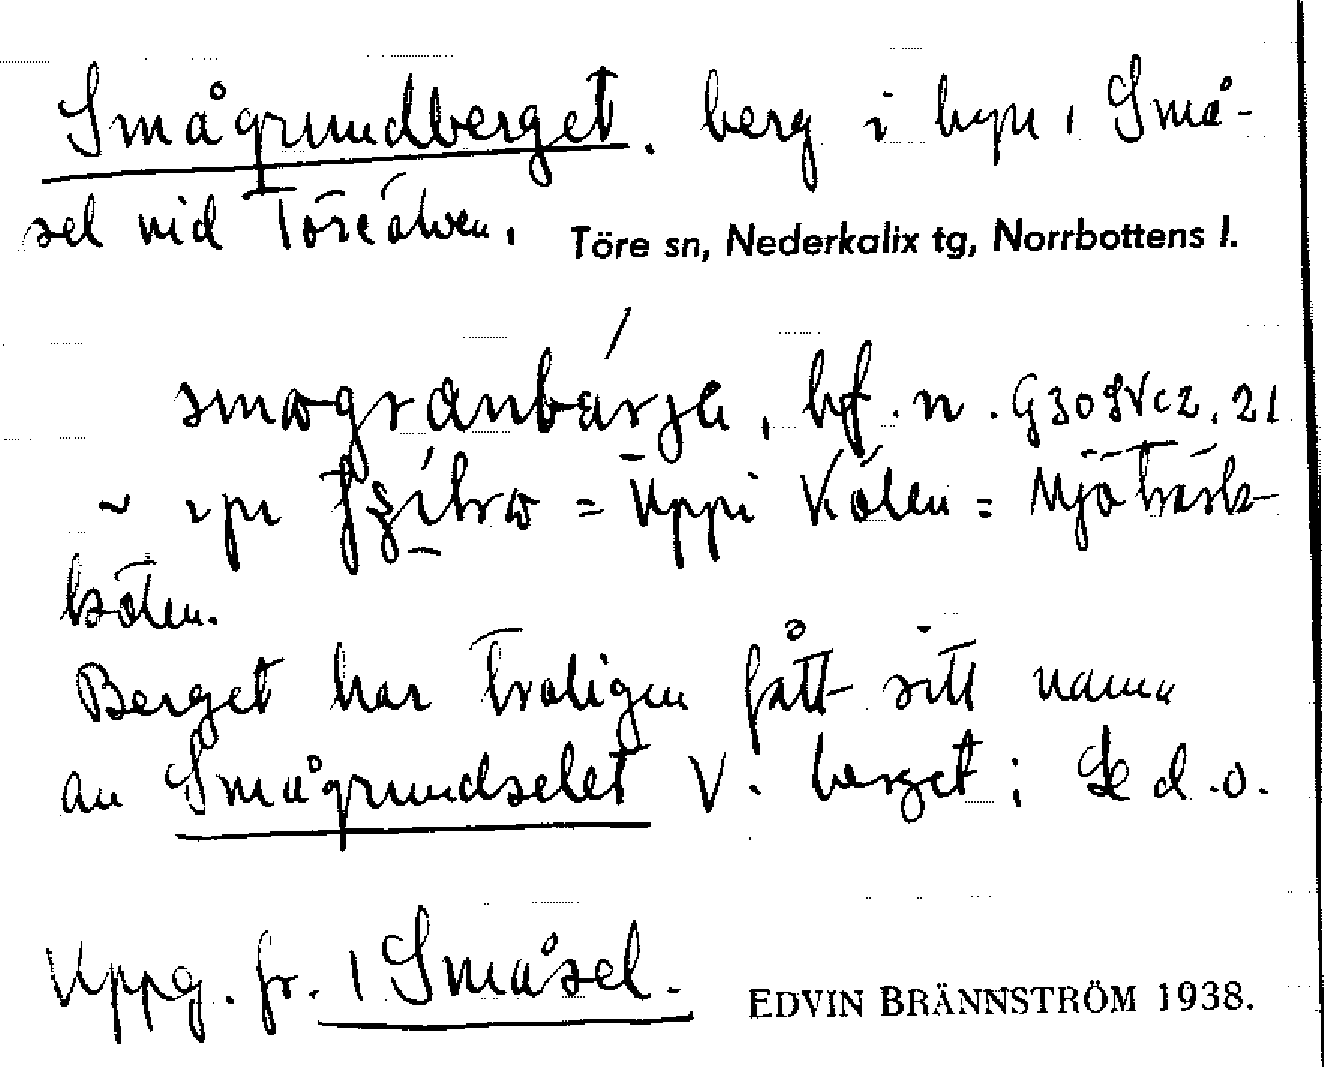 Smågrundberget. berg i byn 1 Små-
sel vid Töreälven.
Töre sn, Nederkalix tg, Norrbottens l.
bf. n. G30SVc2, 21
= Uppi Kölen = Mjöträsk-
kölen.
Berget har troligen fått sitt namn
av Smågrundselet V. berget; Se d.o.
Uppg. fr. 1 Småsel.
EDVIN BRÄNNSTRÖM 1938.